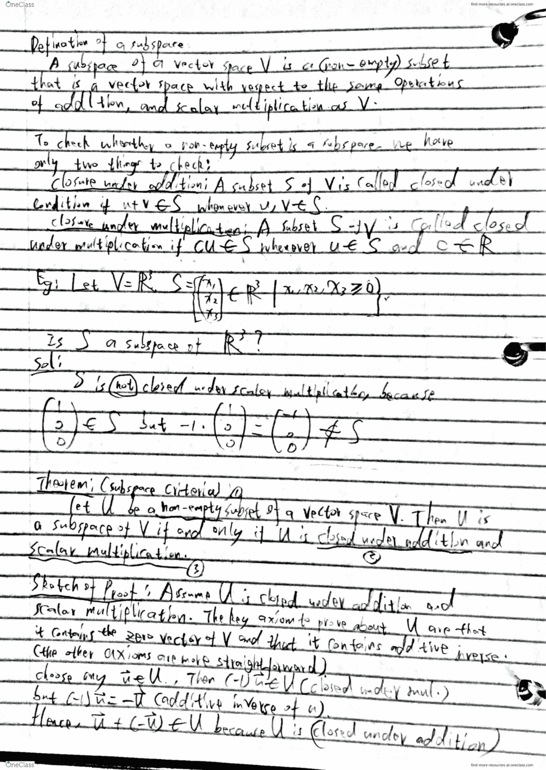 OneClass
find more resources at oneclass.com
Defination of a subspace
A subspace of a vector space V is a (non-empty) subset
that is a vector space with respect to the same operations
of addition, and scalar multiplication as V.
To check whether a non-empty subset is a subspace. we have
only two things to check:
closure under addition: A subset S of V is called closed under
condition if u+v ∈ S whenever u, v ∈ S.
closure under multiplication: A subset S of V is called closed
under multiplication if cu ∈ S whenever u ∈ S and c ∈ R
Eg: Let V = R³ S = {(x₁ x₂ x₃) ∈ R³ | x₁, x₂, x₃ ≥ 0}.
Is S a subspace of R³?
Sol:
S is not closed under scalar multiplication, because
(1 0 0) ∈ S but -1 · (1 0 0) = (-1 0 0) ∉ S
Theorem: (subspace criteria) ①
Let U be a non-empty subset of a vector space V. Then U is
a subspace of V if and only if U is closed under addition and
②
scalar multiplication.
③
Sketch of Proof: Assume U is closed under addition and
scalar multiplication. The key axiom to prove about U are that
it contains the zero vector of V and that it contains additive inverse.
(the other axioms are more straightforward)
choose any u⃗ ∈ U. Then (-1)u⃗ ∈ U (closed under mul.)
but (-1)u⃗ = -u⃗ (additive inverse of u)
Hence, u⃗ + (-u⃗) ∈ U because U is (closed under addition)
OneClass
find more resources at oneclass.com